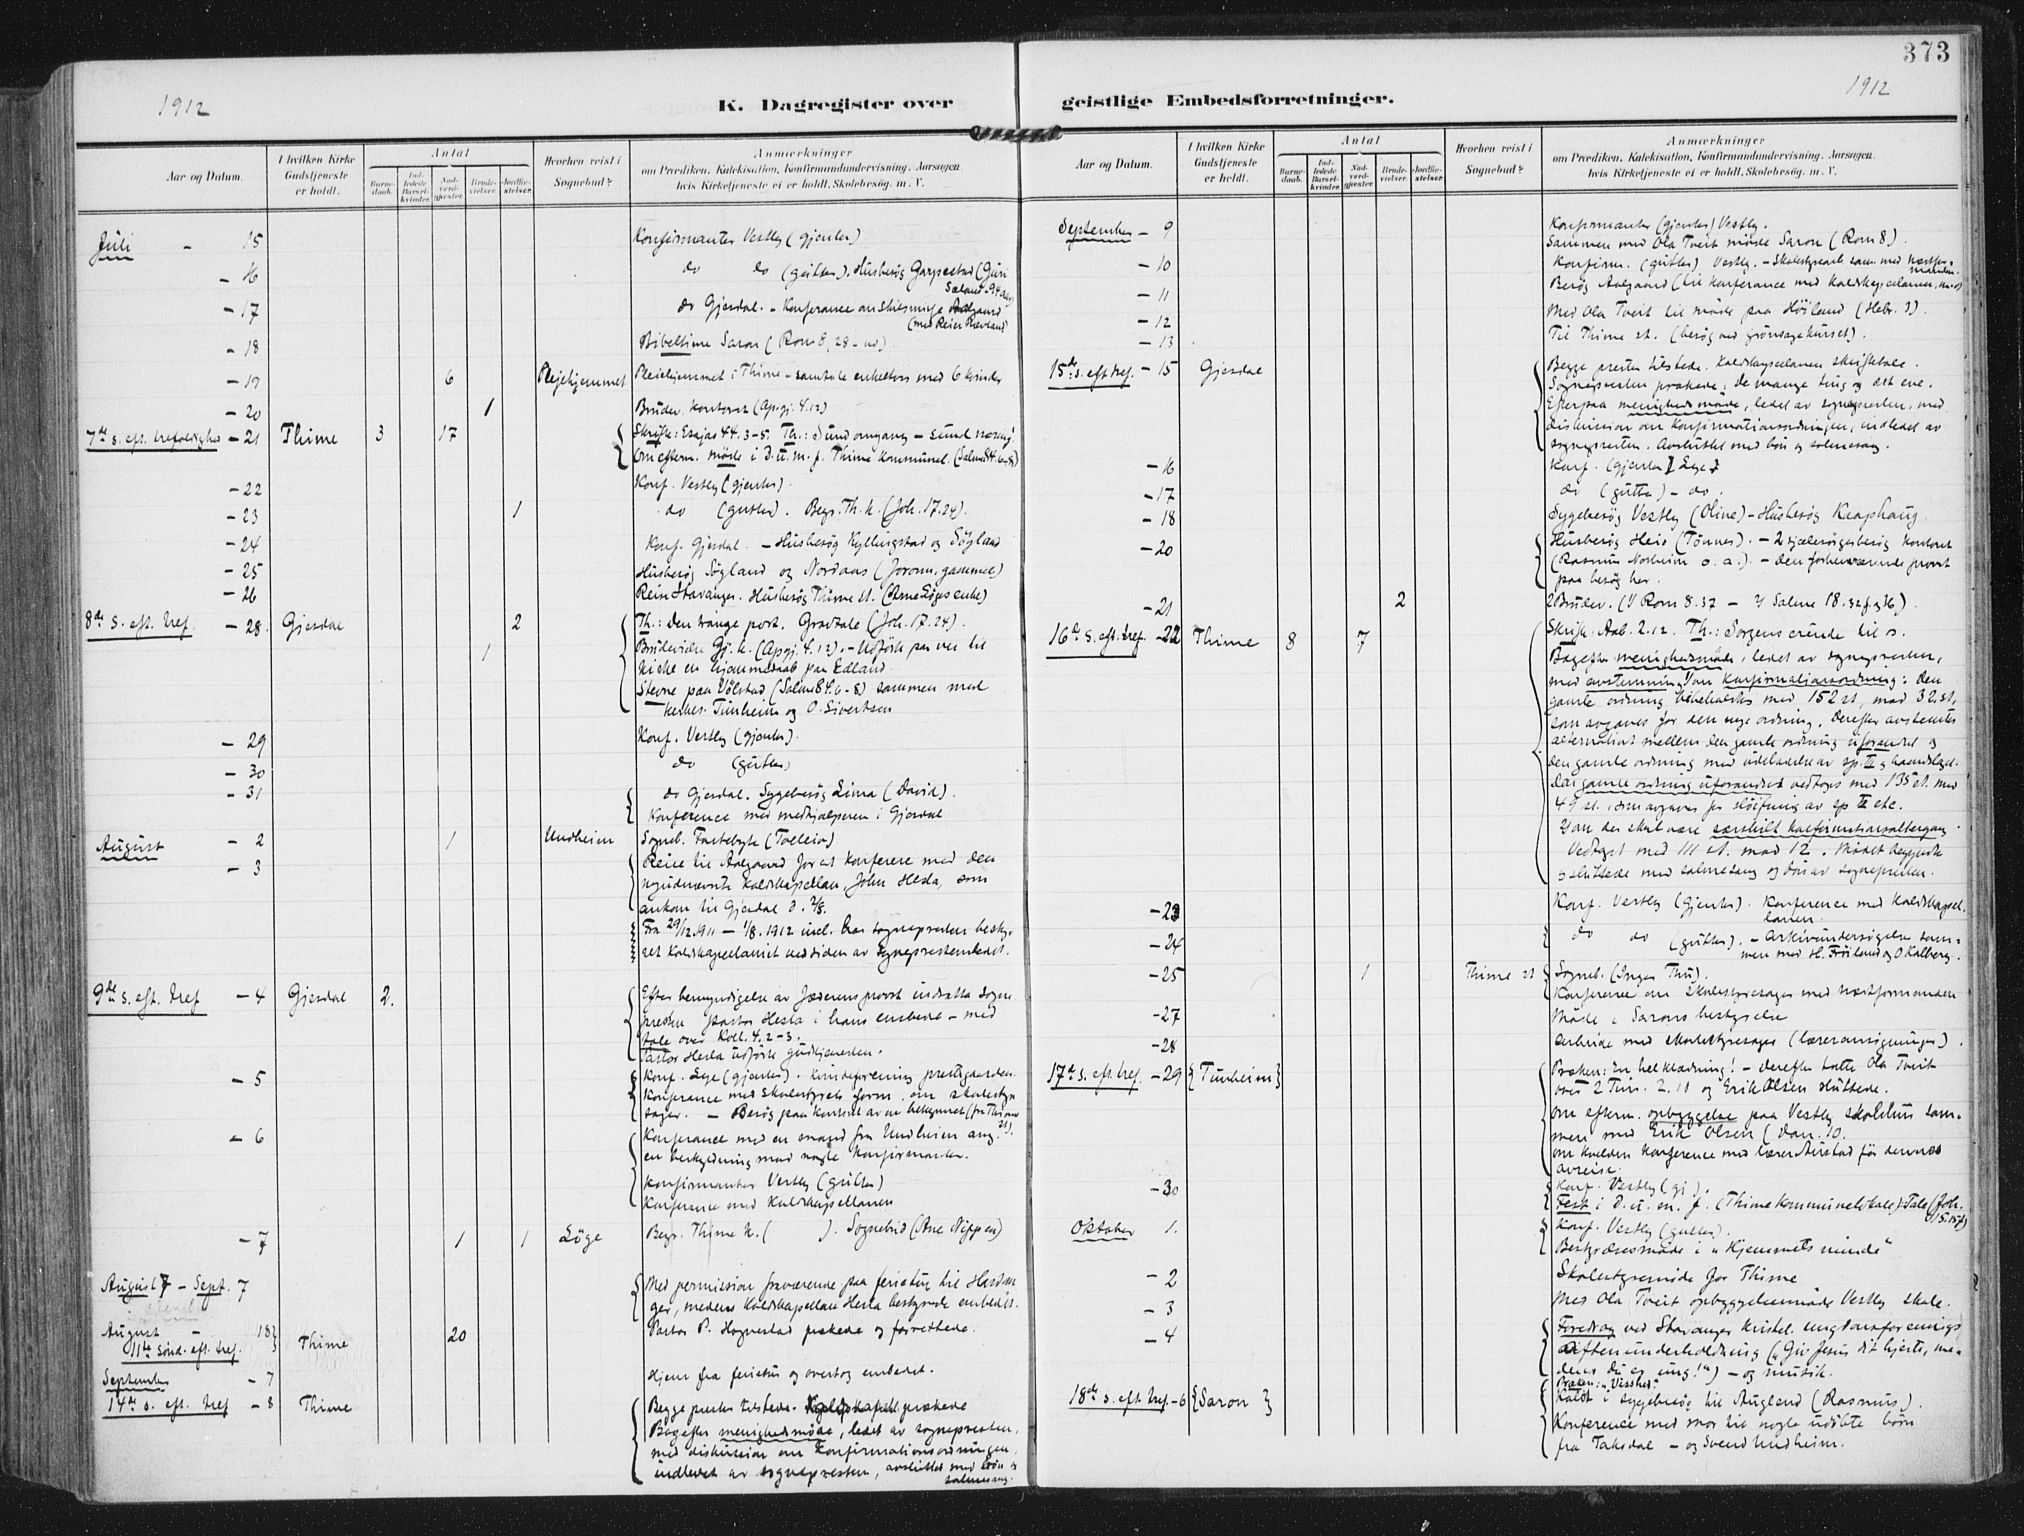 373
1912
1912
K. Dagregister over geistlige Embedsforretninger.
Aar og Datum.
I hvilken Kirke Gudstjeneste er holdt.
Antal
Barnedaab.
Indledede Barselkvinder.
Nadverdgjæster.
Brudevielser.
Jordfæstelser.
Hvorhen reist i Sognebud?
Anmærkninger
om Prædiken, Katekisation, Konfirmandundervisning, Aarsagen,
hvis Kirketjeneste ei er holdt, Skolebesøg, m. V.
Juli - 15 Konfirmanter Vestly (gjenter)
- 16 do do (gutter). Husbesøg Garpestad (Guri
- 17 do Gjesdal. - Konferance
- 18 Bibeltime Saron (Rom 8, 28 - )
- 19 6 Plejehjemmet Pleiehjemmet i Thime - samtale enkeltvis med 6 kvinder
- 20 1 Brudev. kontoret (Apgj. 4.12)
7de s. eft. trefoldighed - 21 Thime 3 17 Skrift: Esajas 44. 3-5. Th.: Sund omgang - sund næring.
Om efterm. møde i D.u.m.f. Thime kommunel. (Salme 84. 6-8)
- 22 Konf. Vestly (gjenter).
- 23 1 do (gutter). Begr. Th. k. (Joh. 17.24).
- 24 Konf. Gjesdal. - Husbesøg Kyllingstad og Søyland
- 25 Husbesøg Søyland og Nordaas
- 26 Reise Stavanger. Husbesøg Thime st.
8de s. eft. tref. - 28. Gjesdal 2 Th.: Den trange port. Gravtale (Joh. 17.24).
1 Brudevielse Gj. k. (Apgj. 4.12). - Udførte paa vei til
kirke en hjemmedaab paa Edland.
Stevne paa Ølstad (Salme 84. 6-8) sammen med
Tunheim og O. Sivertsen
- 29 Konf. Vestly (gjenter).
- 30 do (gutter)
- 31 do Gjesdal. Sygebesøg Lima (David).
Konference med medhjælperen i Gjesdal
August - 2 1 Undheim Sogneb.
- 3 Reise til Aalgaard for at konferere med den
nyudnævnte kaldskapellan, John Hesla, som
ankom til Gjesdal d. 2/8.
Fra 29/12.1911 - 1/8.1912 incl. har sognepresten besty-
ret kaldskapellaniet ved siden av sogneprestembedet.
9de s. eft. tref - 4 Gjesdal 2. Efter bemyndigelse av Jæderens provst indsatte sogne
presten pastor Hesla i hans embede - med
tale over Koll. 4. 2-3.
Pastor Hesla udførte gudstjenesten.
- 5 Konf. Lye (gjenter). Kvindeforening prestgaarden.
Konference med skolestyrets form. om skolestyre
sager. - Besøg paa kontoret av en bekymret (fra Thime
st).
- 6 Konferance med en mand fra Undheim ang.
en beskyldning mod nogle konfirmanter.
Konfirmanter Vestly (gutter)
Konference med kaldskapellanen
- 7 1 1 Løge Begr. Thime k. ( ). Sognebud (Ane Nippen)
August 7 - Sept. 7 Med permission fraværende paa ferietur til Hardan
ger, medens kaldskapellan Hesla bestyrede embedet.
August - 18 Thime 20 Pastor P. Hognestad prækede og forrettede.
11te sønd. eft. tref.
September - 7 Hjem fra ferietur og overtog embedet.
14de s. eft. tref - 8 Thime Begge prester tilstede. prækede
Bagefter menighedsmøde, ledet av sognepresten,
med diskussion om konfirmationsordningen,
indledet av sognepresten, avsluttet med bøn og
salmesang.
Aar og Datum.
I hvilken Kirke Gudstjeneste er holdt.
Antal
Barnedaab.
Indledede Barselkvinder.
Nadverdgjæster.
Brudevielser.
Jordfæstelser.
Hvorhen reist i Sognebud?
Anmærkninger
om Prædiken, Katekisation, Konfirmandundervisning, Aarsagen,
hvis Kirketjeneste ei er holdt, Skolebesøg, m. V.
September - 9 Konfirmanter (gjenter) Vestly.
Sammen med Ola Tveit møde Saron (Rom 8).
- 10 Konfirm. (gutter) Vestly. - Skolestyrearb. sam. med næstfor-
manden.
- 11 Besøg Aalgaard (til konferance med kaldskapellanen)
- 12 Med Ola Tveit til møde paa Høiland (Hebr. 3).
- 13 Til Thime st. (besøg ved grønsagekurset).
15de s. eft. tref. - 15 Gjesdal Begge prester tilstede. Kaldskapellanen skriftetale.
Sognepresten prækede: De mange ting og det ene.
Efterpaa menighedsmøde, ledet av sognepresten, med
diskussion om konfirmationsordningen, indledet av
sognepresten. Avsluttet med bøn og salmesang.
- 16 Konf. (gjenter) Lye
- 17 do (gutte) - do.
- 18 Sygebesøg Vestly (Oline) - Husbesøg Kraphaug
- 20 Husbesøg Heio (Tønnes). - 2 sjælesørgerbesøg kontoret
(Rasmus Norheim o. a.). - Den forhenværende provst
paa besøg her.
- 21 2 2 Brudev. (Rom 8.37 - Salme 18. 32 f. 36).
16de s. eft. tref. - 22 Thime 8 7 Skrift: Aab. 2.12. Th.: Sorgens ærinde til os.
Bagefter menighedsmøde, ledet av sognepresten,
med avstemning om konfirmationsordning: den
gamle ordning beholdtes med 152 st. mod 32 st.,
som avgaves for den nye ordning. Derefter avstemtes
alternativt mellem den gamle ordning uforandret og
den gamle ordning med udeladelse av sp. II og haandslag.
Den gamle ordning uforandret vedtoges med 135 st. mod
49 st. som avgaves for sløifning av sp II etc.
om der skal være særskilt konfirmationsaltergang
Vedtaget med 111 st. mod 12. Mødet begyndte
og sluttede med salmesang og bøn av sognepresten.
- 23 Konf. Vestly (gjenter). Konference med kaldskapel-
lanen.
- 24 do do (gutter). - Arkivundersøgelse sam-
men med H. Frøiland og O Kalberg.
- 25 1 Thime st Sogneb. (Inger Thu).
Konference om skolestyresager med næstformanden
- 27 Møde i Sarons bestyrelse
- 28 Arbeide med skolestyresager (læreransøgninger).
17de s. eft. tref. - 29 {Tunheim} Præken: En hel klædning! - derefter talte Ola Tveit
over 2 Tim. 2.10 og Erik Olsen sluttede.
Om efterm. opbyggelse paa Vestly skolehus sam-
men med Erik Olsen (Dan. 10.
Om kvelden konference med lærer Aurstad før dennes
avreise.
- 30 Konf. Vestly (gj).
Fest i D. u. m. f. (Thime kommunelokale). Tale (Joh.
15.15f)
Oktober 1. Konf. Vestly (gutter).
Bestyrelsesmøde i "Hjemmets minde"
- 2 Skolestyremøde for Thime
- 3 Med Ola Tveit opbyggelsesmøde Vestly skole.
- 4 Foredrag ved Stavanger kristel. ungdomsforenings
Aftenunderholdning ("Giv Jesus dit hjerte, me-
dens du er ung!") - og musik.
18de s. eft. tref. - 6 {Saron} Præken: "Visshet."
Kaldt i sygebesøg til Augland (Rasmus).
Konference med mor til nogle udsatte børn
fra Taksdal - og Svend Undheim.